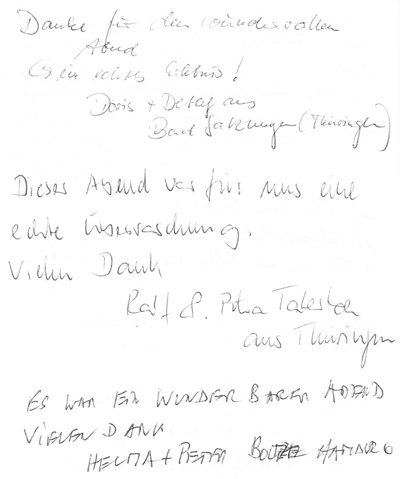 Danke für den wundervollen
Abend
Es ein echtes Erlebnis!
Doris + Detlef aus
Bad Salzungen (Thüringen)
Dieser Abend war für uns eine
echte Überraschung.
Vielen Dank
Ralf & Petra
aus Thüringen
ES WAR EIN WUNDERBARER ABEND
VIELEN DANK
HELMA + PETER HAMBURG